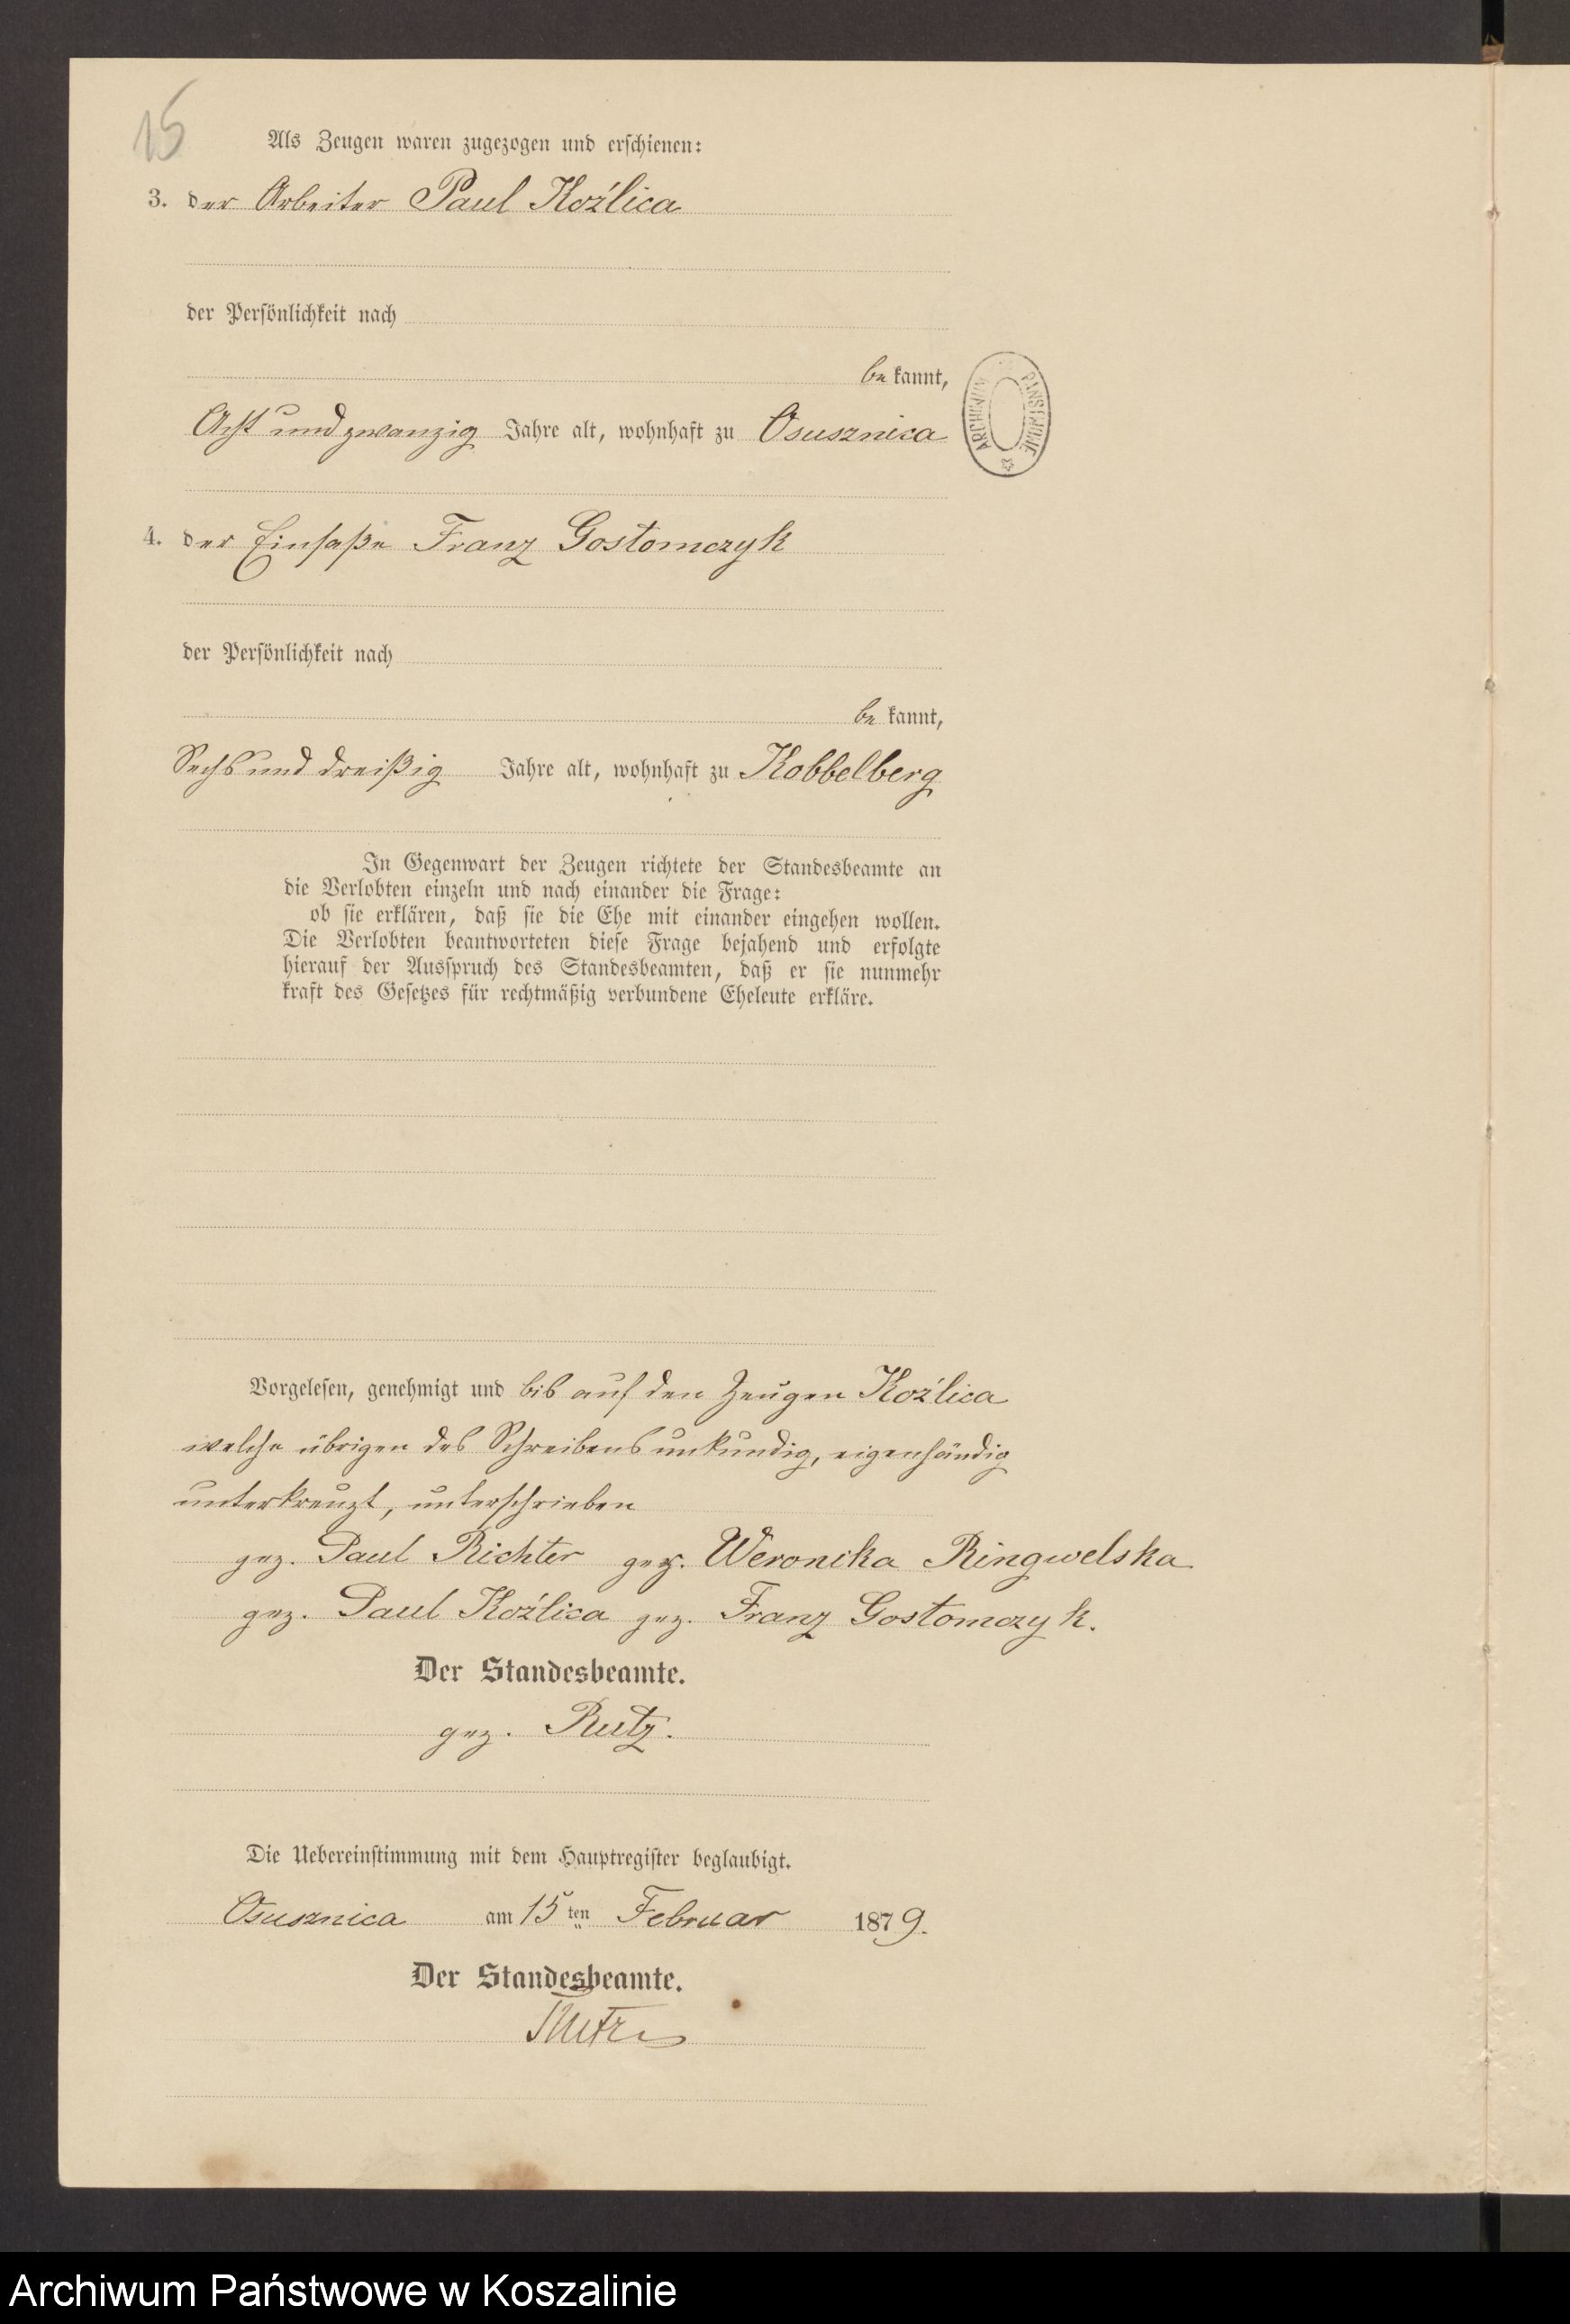 15
Als Zeugen waren zugezogen und erschienen:
3. der Arbeiter Paul Koźlica
der Persönlichkeit nach
be kannt,
Acht und zwanzig Jahre alt, wohnhaft zu Osusznica
ARCHIWUM PAŃSTWOWE
4. der Einsaße Franz Gostomczyk
der Persönlichkeit nach
be kannt,
Sechs und dreißig Jahre alt, wohnhaft zu Kobbelberg
In Gegenwart der Zeugen richtete der Standesbeamte an
die Verlobten einzeln und nach einander die Frage:
ob sie erklären, daß sie die Ehe mit einander eingehen wollen.
Die Verlobten beantworteten diese Frage bejahend und erfolgte
hierauf der Ausspruch des Standesbeamten, daß er sie nunmehr
kraft des Gesetzes für rechtmäßig verbundene Eheleute erkläre.
Vorgelesen, genehmigt und bis auf den Zeugen Koźlica
welche übrigen des Schreibens unkundig, eigenhändig
unterkreuzt, unterschrieben
gez. Paul Richter gez. Weronika Ringwelska
gez. Paul Koźlica gez. Franz Gostomczyk.
Der Standesbeamte.
gez. Rutz.
Die Uebereinstimmung mit dem Hauptregister beglaubigt.
Osusznica am 15 ten Februar 1879.
Der Standesbeamte.
Rutz
Archiwum Państwowe w Koszalinie